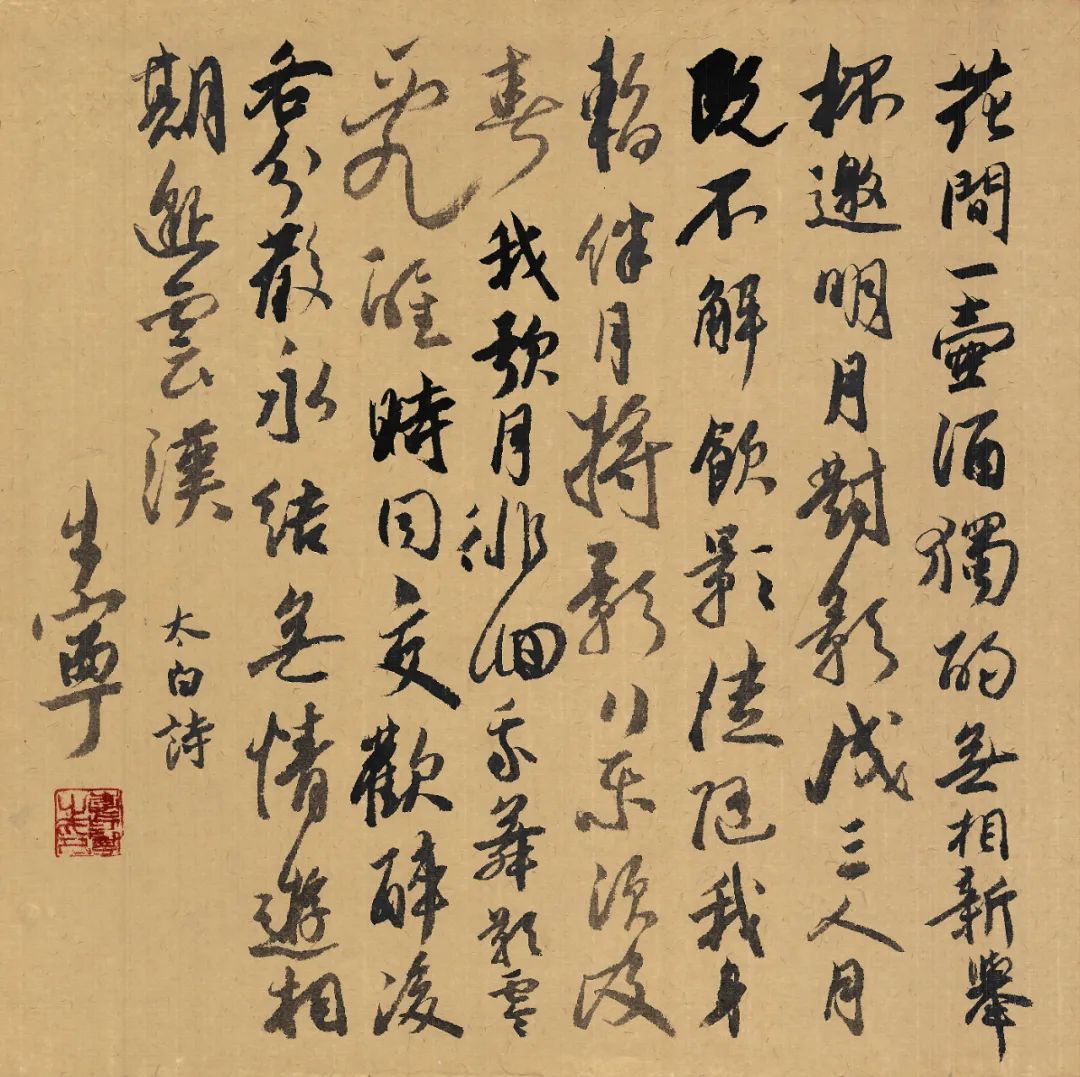 花間一壺酒獨酌無相新舉
杯邀明月對影成三人月
既不解飲影徒隨我身
暫伴月將影行樂須及
春我歌月徘徊我舞影零
亂醒時同交歡醉後
各分散永結無情遊相
期邈雲漢
太白詩